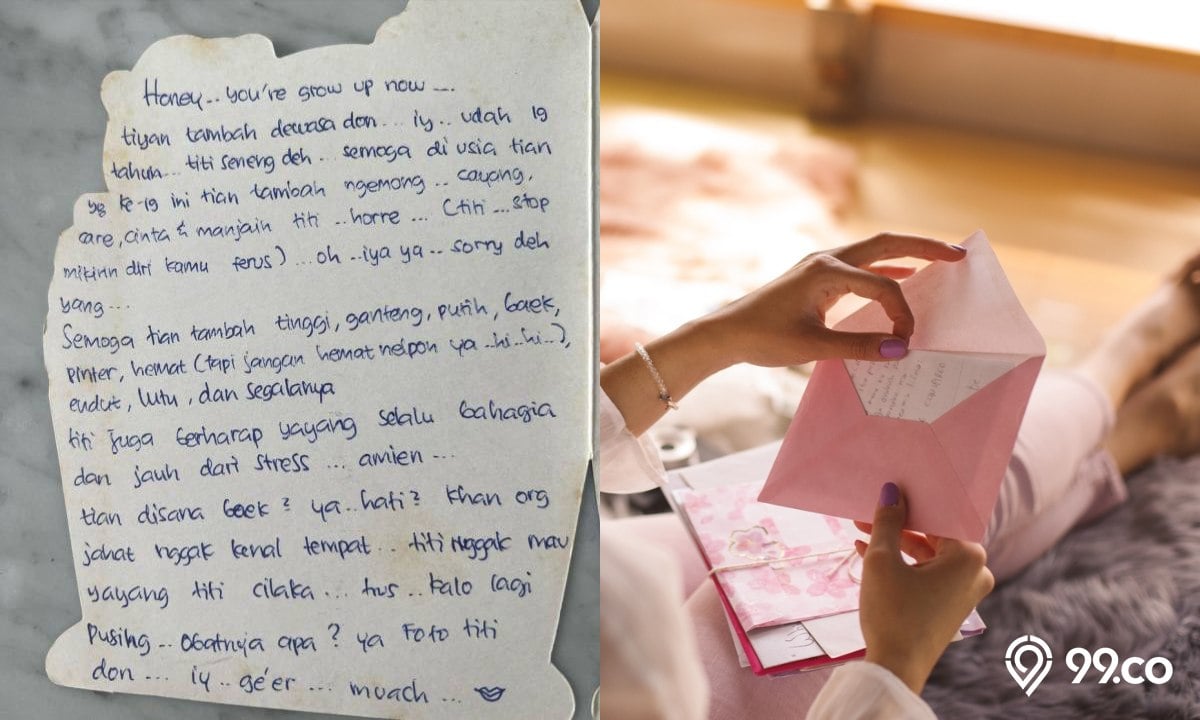 Honey.. you're grow up now ....
tiyan tambah dewasa don... iy.. udah 19
tahun... titi seneng deh... semoga di usia tian
yg ke-19 ini tian tambah ngemong.. cayang,
care, cinta & manjain titi ..horre ... (titi ...stop
mikirin diri kamu terus) ...oh ..iya ya.. sorry deh
yang...
Semoga tian tambah tinggi, ganteng, putih, baek,
pinter, hemat (tapi jangan hemat nelpon ya ..hi..hi..),
endut, lutu, dan segalanya
titi juga berharap yayang selalu bahagia
dan jauh dari stress ... amien ...
tian disana baek? ya..hati? khan org
jahat nggak kenal tempat.. titi nggak mau
yayang titi cilaka ... hus.. kalo lagi
pusing.. obatnya apa? ya Foto titi
don .... iy.. ge'er .... muach ...
99.co